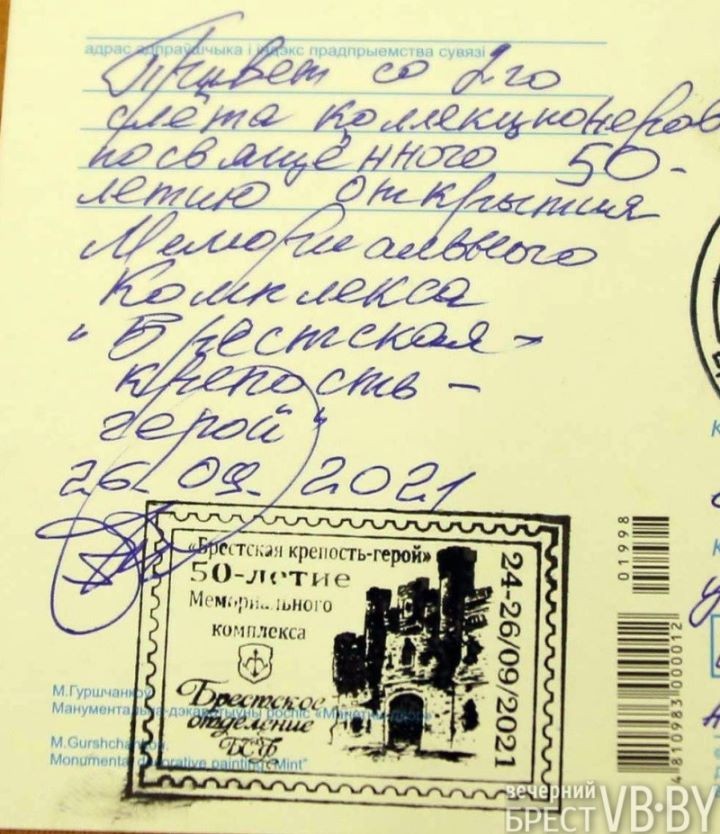 адрас адпраўшчыка і індэкс прадпрыемства сувязі
Привет со 2го
слёта коллекционеров
посвящённого 50-
летию открытия
Мемориального
Комплекса
"Брестская-
крепость-
герой"
26.09.2021
«Брестская крепость-герой»
50-летие
Мемориального
комплекса
24-26/09/2021
Брестское
отделение
БСФ
М.Гуршчанкоў
Манументальна-дэкаратыўны роспіс
M.Gurshchankov.
Monumental decorative painting "Mint"
01998
4810983000012
вечерний
БРЕСТ VB.BY